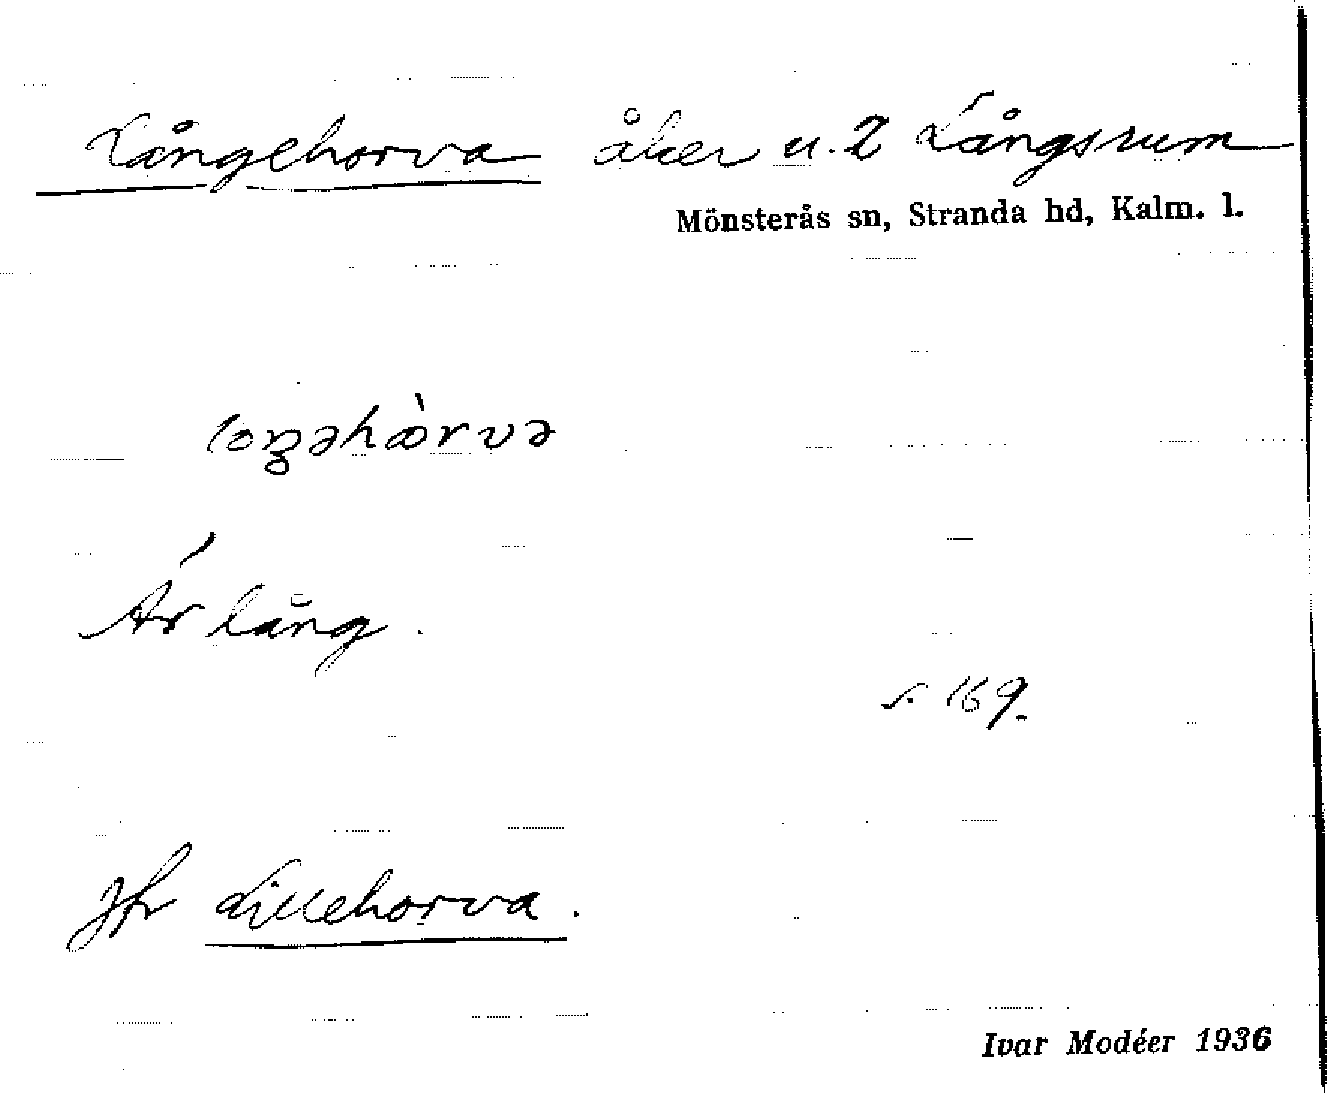 Långehorva åker u. 2 Långsrum
Mönsterås sn, Stranda hd, Kalm. l.
Är lång.
s. 169.
Jfr Lillehorva.
Ivar Modéer 1936